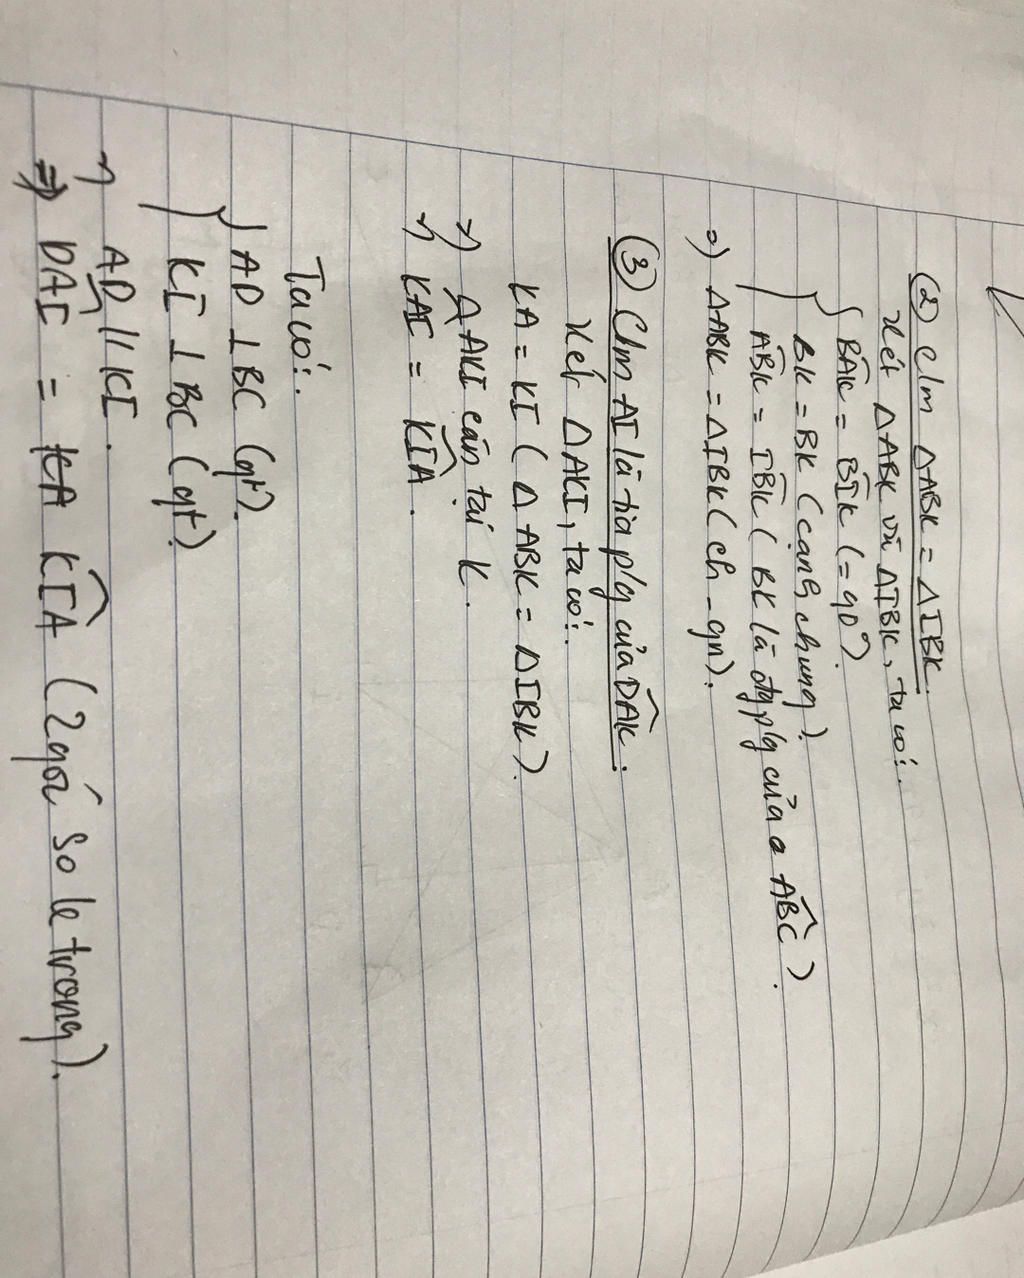 ② C/m ΔABK = ΔIBK.
Xét ΔABK và ΔIBK, ta có:
{ BÂK = BÎK (= 90°).
BK = BK (cạnh chung).
AB̂K = IB̂K (BK là đg p/g của AB̂C).
=> ΔABK = ΔIBK (ch - gn).
③ C/m AI là tia p/g của DÂK:
Xét ΔAKI, ta có:
KA = KI (ΔABK = ΔIBK).
=> ΔAKI cân tại K.
=> KÂI = KÎA.
Ta có:
{ AD ⊥ BC (gt).
KI ⊥ BC (gt)
=> AD // KI.
=> DÂI = KÎA (2 góc so le trong).